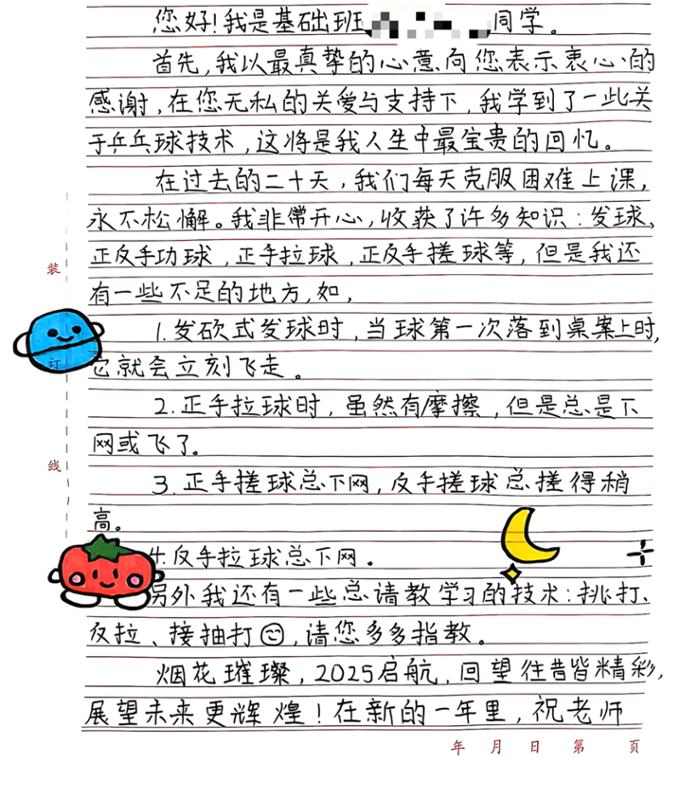 您好!我是基础班
同学。
首先,我以最真挚的心意向您表示衷心的
感谢,在您无私的关爱与支持下,我学到了一些关
于乒乓球技术,这将是我人生中最宝贵的回忆。
在过去的二十天,我们每天克服困难上课,
永不松懈。我非常开心,收获了许多知识:发球、
正反手功球,正手拉球,正反手搓球等,但是我还
有一些不足的地方,如,
1.发砍式发球时,当球第一次落到桌案上时,
它就会立刻飞走。
2.正手拉球时,虽然有摩擦,但是总是下
网或飞了。
3.正手搓球总下网,反手搓球总搓得稍
高。
4.反手拉球总下网。
另外我还有一些想请教学习的技术:挑打、
反拉、接抽打☺,请您多多指教。
烟花璀璨,2025启航,回望往昔皆精彩,
展望未来更辉煌!在新的一年里,祝老师
年 月 日 第 页
装
订
线